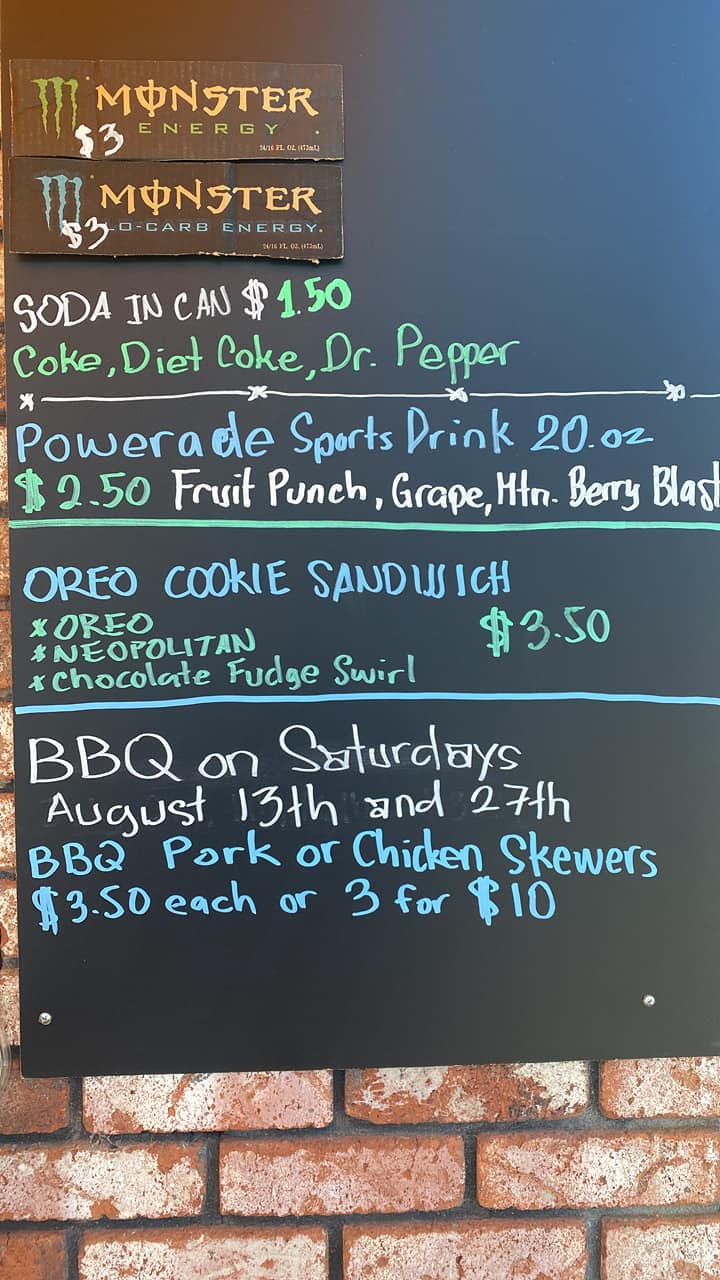 MONSTER
ENERGY
$3
24/16 FL. OZ. (473mL)
MONSTER
LO-CARB ENERGY.
$3
24/16 FL. OZ. (473mL)
SODA IN CAN $1.50
Coke, Diet Coke, Dr. Pepper
Powerade Sports Drink 20.oz
$2.50 Fruit Punch, Grape, Mtn. Berry Blast
OREO COOKIE SANDWICH
x OREO
$3.50
x NEOPOLITAN
x Chocolate Fudge Swirl
BBQ on Saturdays
August 13th and 27th
BBQ Pork or Chicken Skewers
$3.50 each or 3 for $10